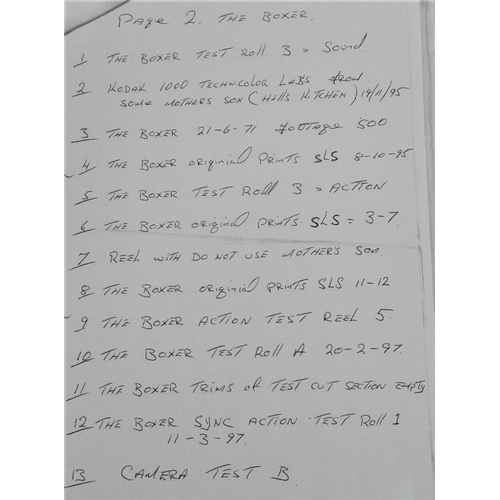 Page 2. THE BOXER.
1 THE BOXER TEST Roll 3 = Sound.
2 KODAK 1000 TECHNICOLOR LABS from
SOME MOTHERS SON (HELLS KITCHEN) 19/11/95
3 THE BOXER 21-6-71 FOOTAGE 500
4 THE BOXER originial Prints SLS 8-10-95
5 THE BOXER TEST Roll 3 = ACTION
6 THE BOXER original prints SLS = 3-7.
7 REEL WITH DO NOT USE MOTHER'S SON.
8 THE BOXER originial prints SLS 11-12
9 THE BOXER ACTION TEST REEL 5.
10 THE BOXER TEST Roll A 20-2-97.
11 THE BOXER TRIMS of TEST CUT SECTION EMPTY
12 THE BOXER SYNC ACTION TEST Roll 1
11-3-97.
13 CAMERA TEST B